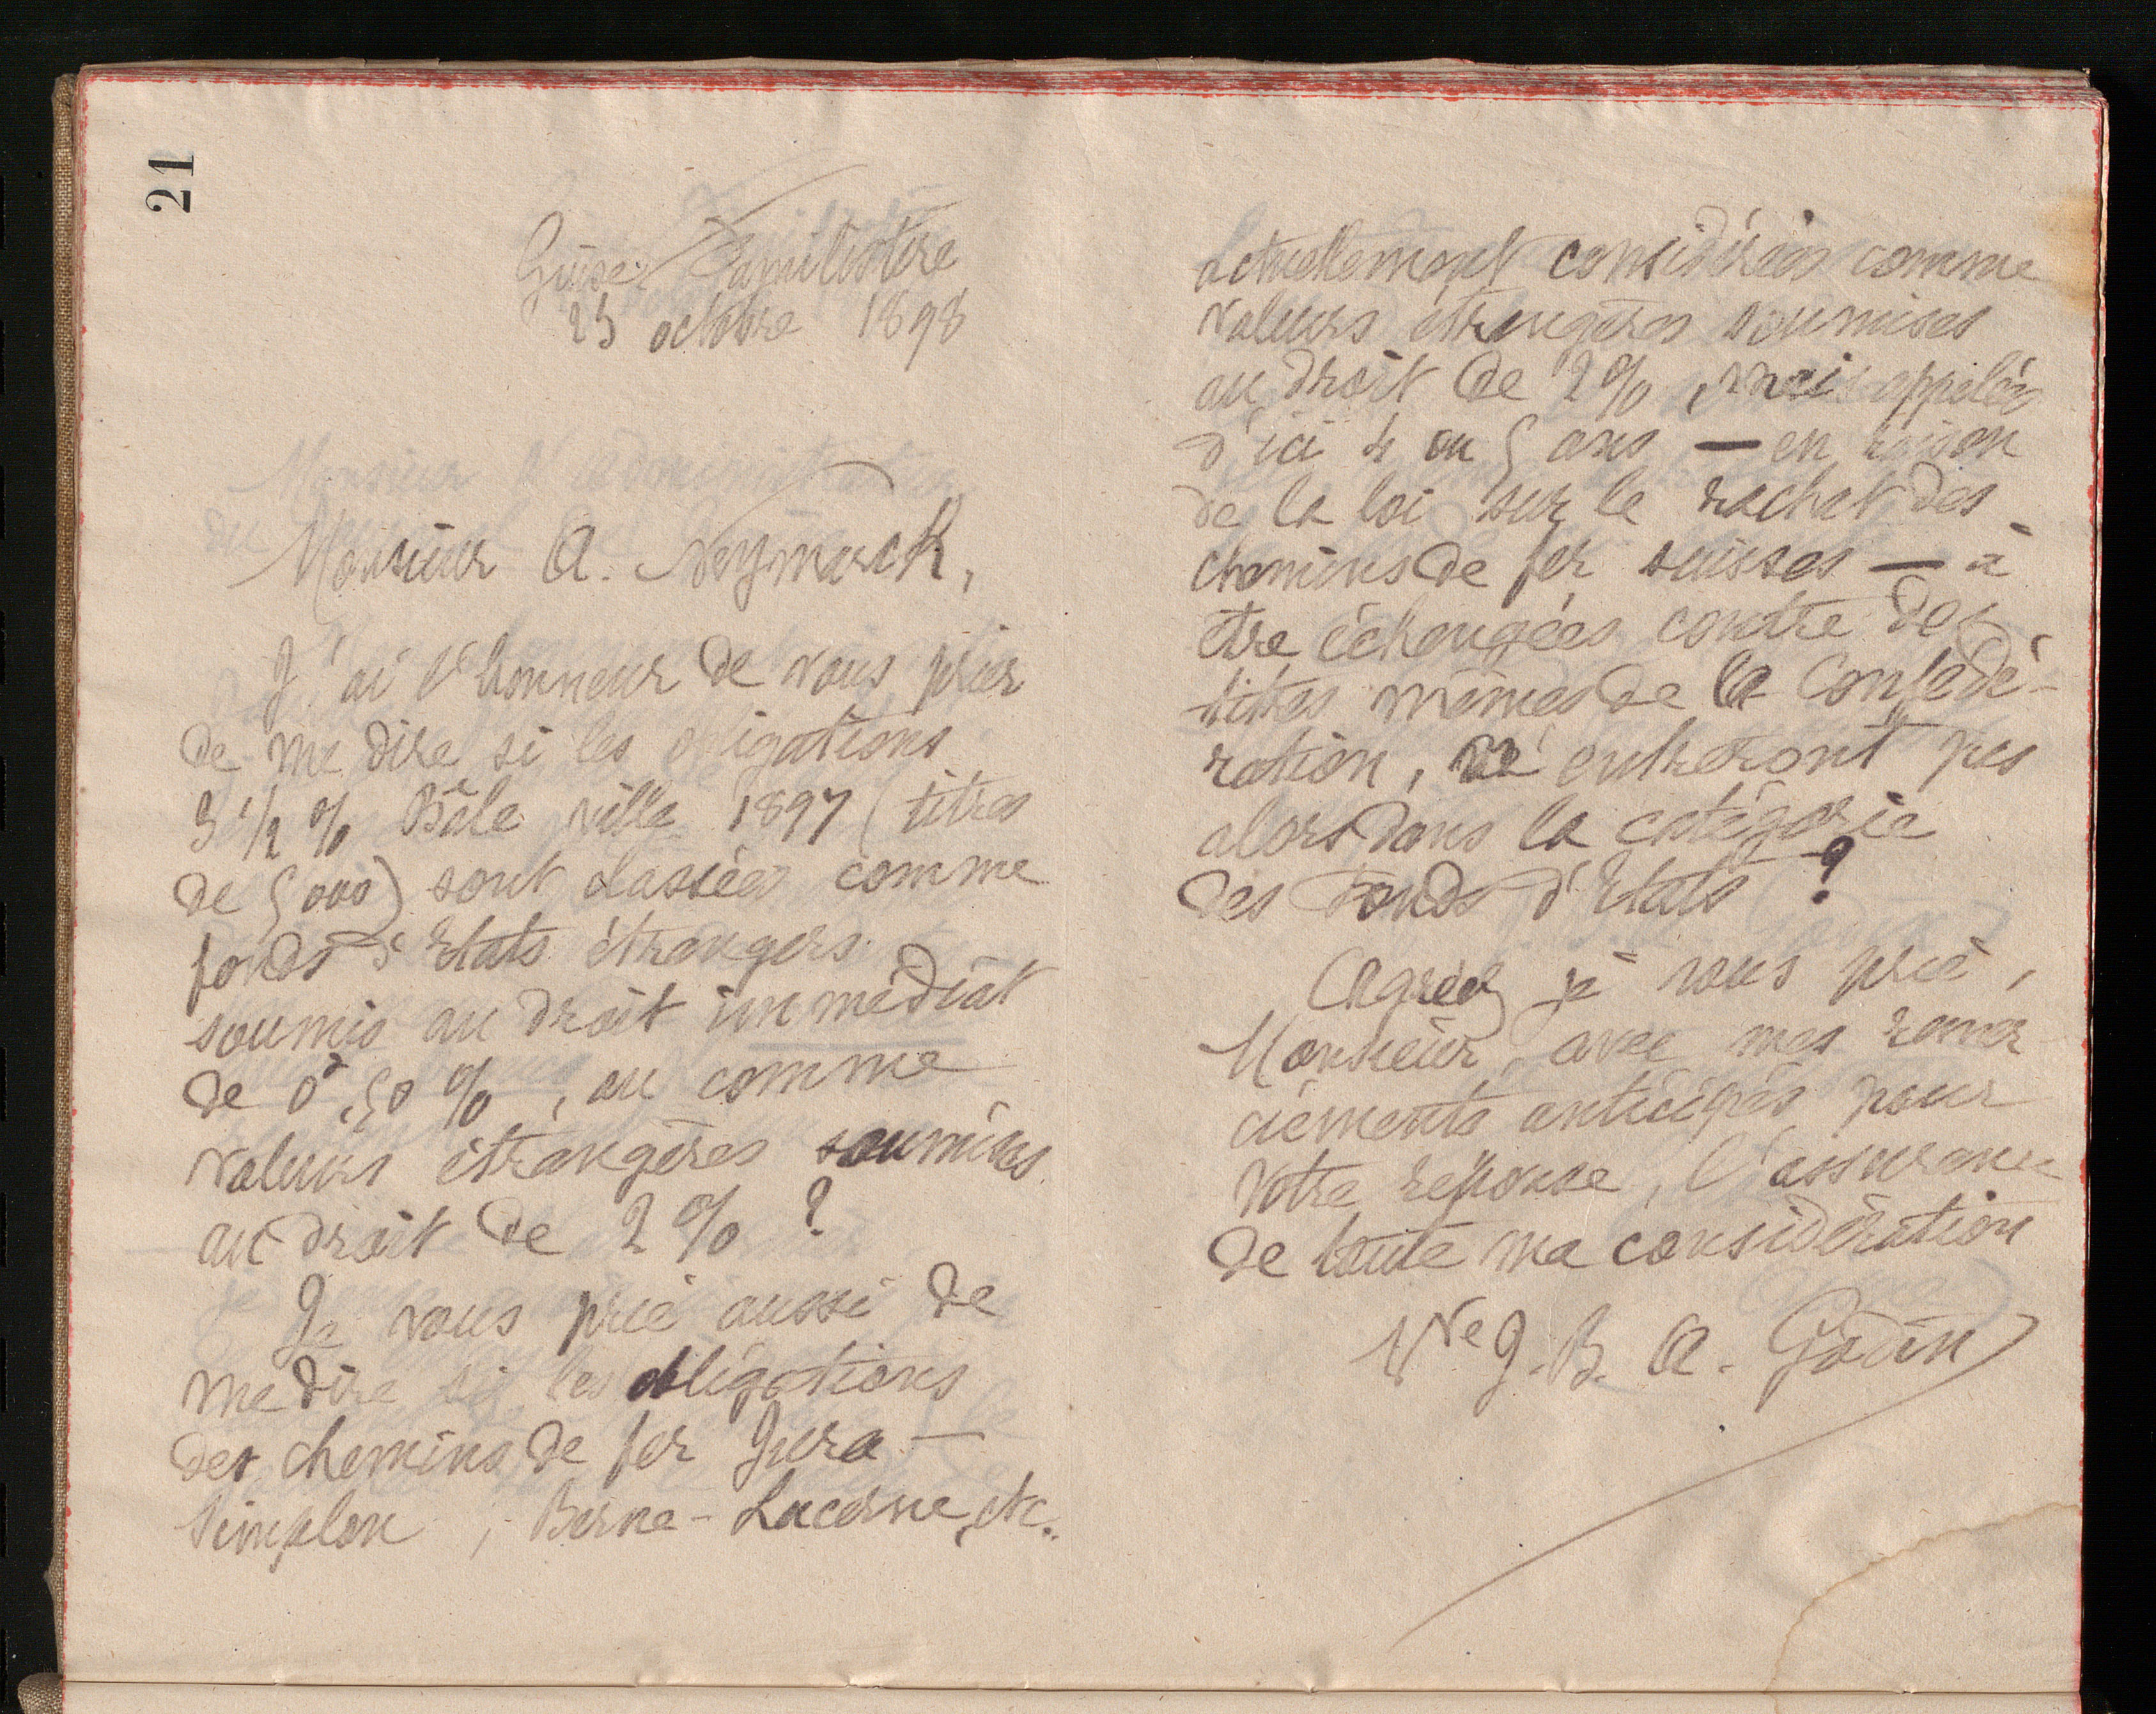 21
Guise Familistère
25 octobre 1898
Monsieur A. Neymarck,
J'ai l'honneur de vous prier
de me dire si les obligations
3 ½ % Bâle ville 1897 (titres
de 5000) sont classées comme
fonds d'Etats étrangers
soumis au droit immédiat
de 0f,50 %, ou comme
valeurs étrangères soumises
au droit de 2 % ?
Je vous prie aussi de
me dire si les obligations
des chemins de fer Jura-
Simplon, Berne-Lucerne, etc.
actuellement considérées comme
valeurs étrangères soumises
au droit de 2 % mais appelées
d'ici 4 ou 5 ans — en raison
de la loi sur le rachat des
chemins de fer suisses — à
être échangées contre des
titres mêmes de la Confédé-
ration, n'entreront pas
alors dans la catégorie
des fonds d'Etats ?
Agréez je vous prie,
Monsieur, avec mes remer
ciements anticipés pour
votre réponse, l'assurance
de toute ma considération
Vve J. B. A. Godin